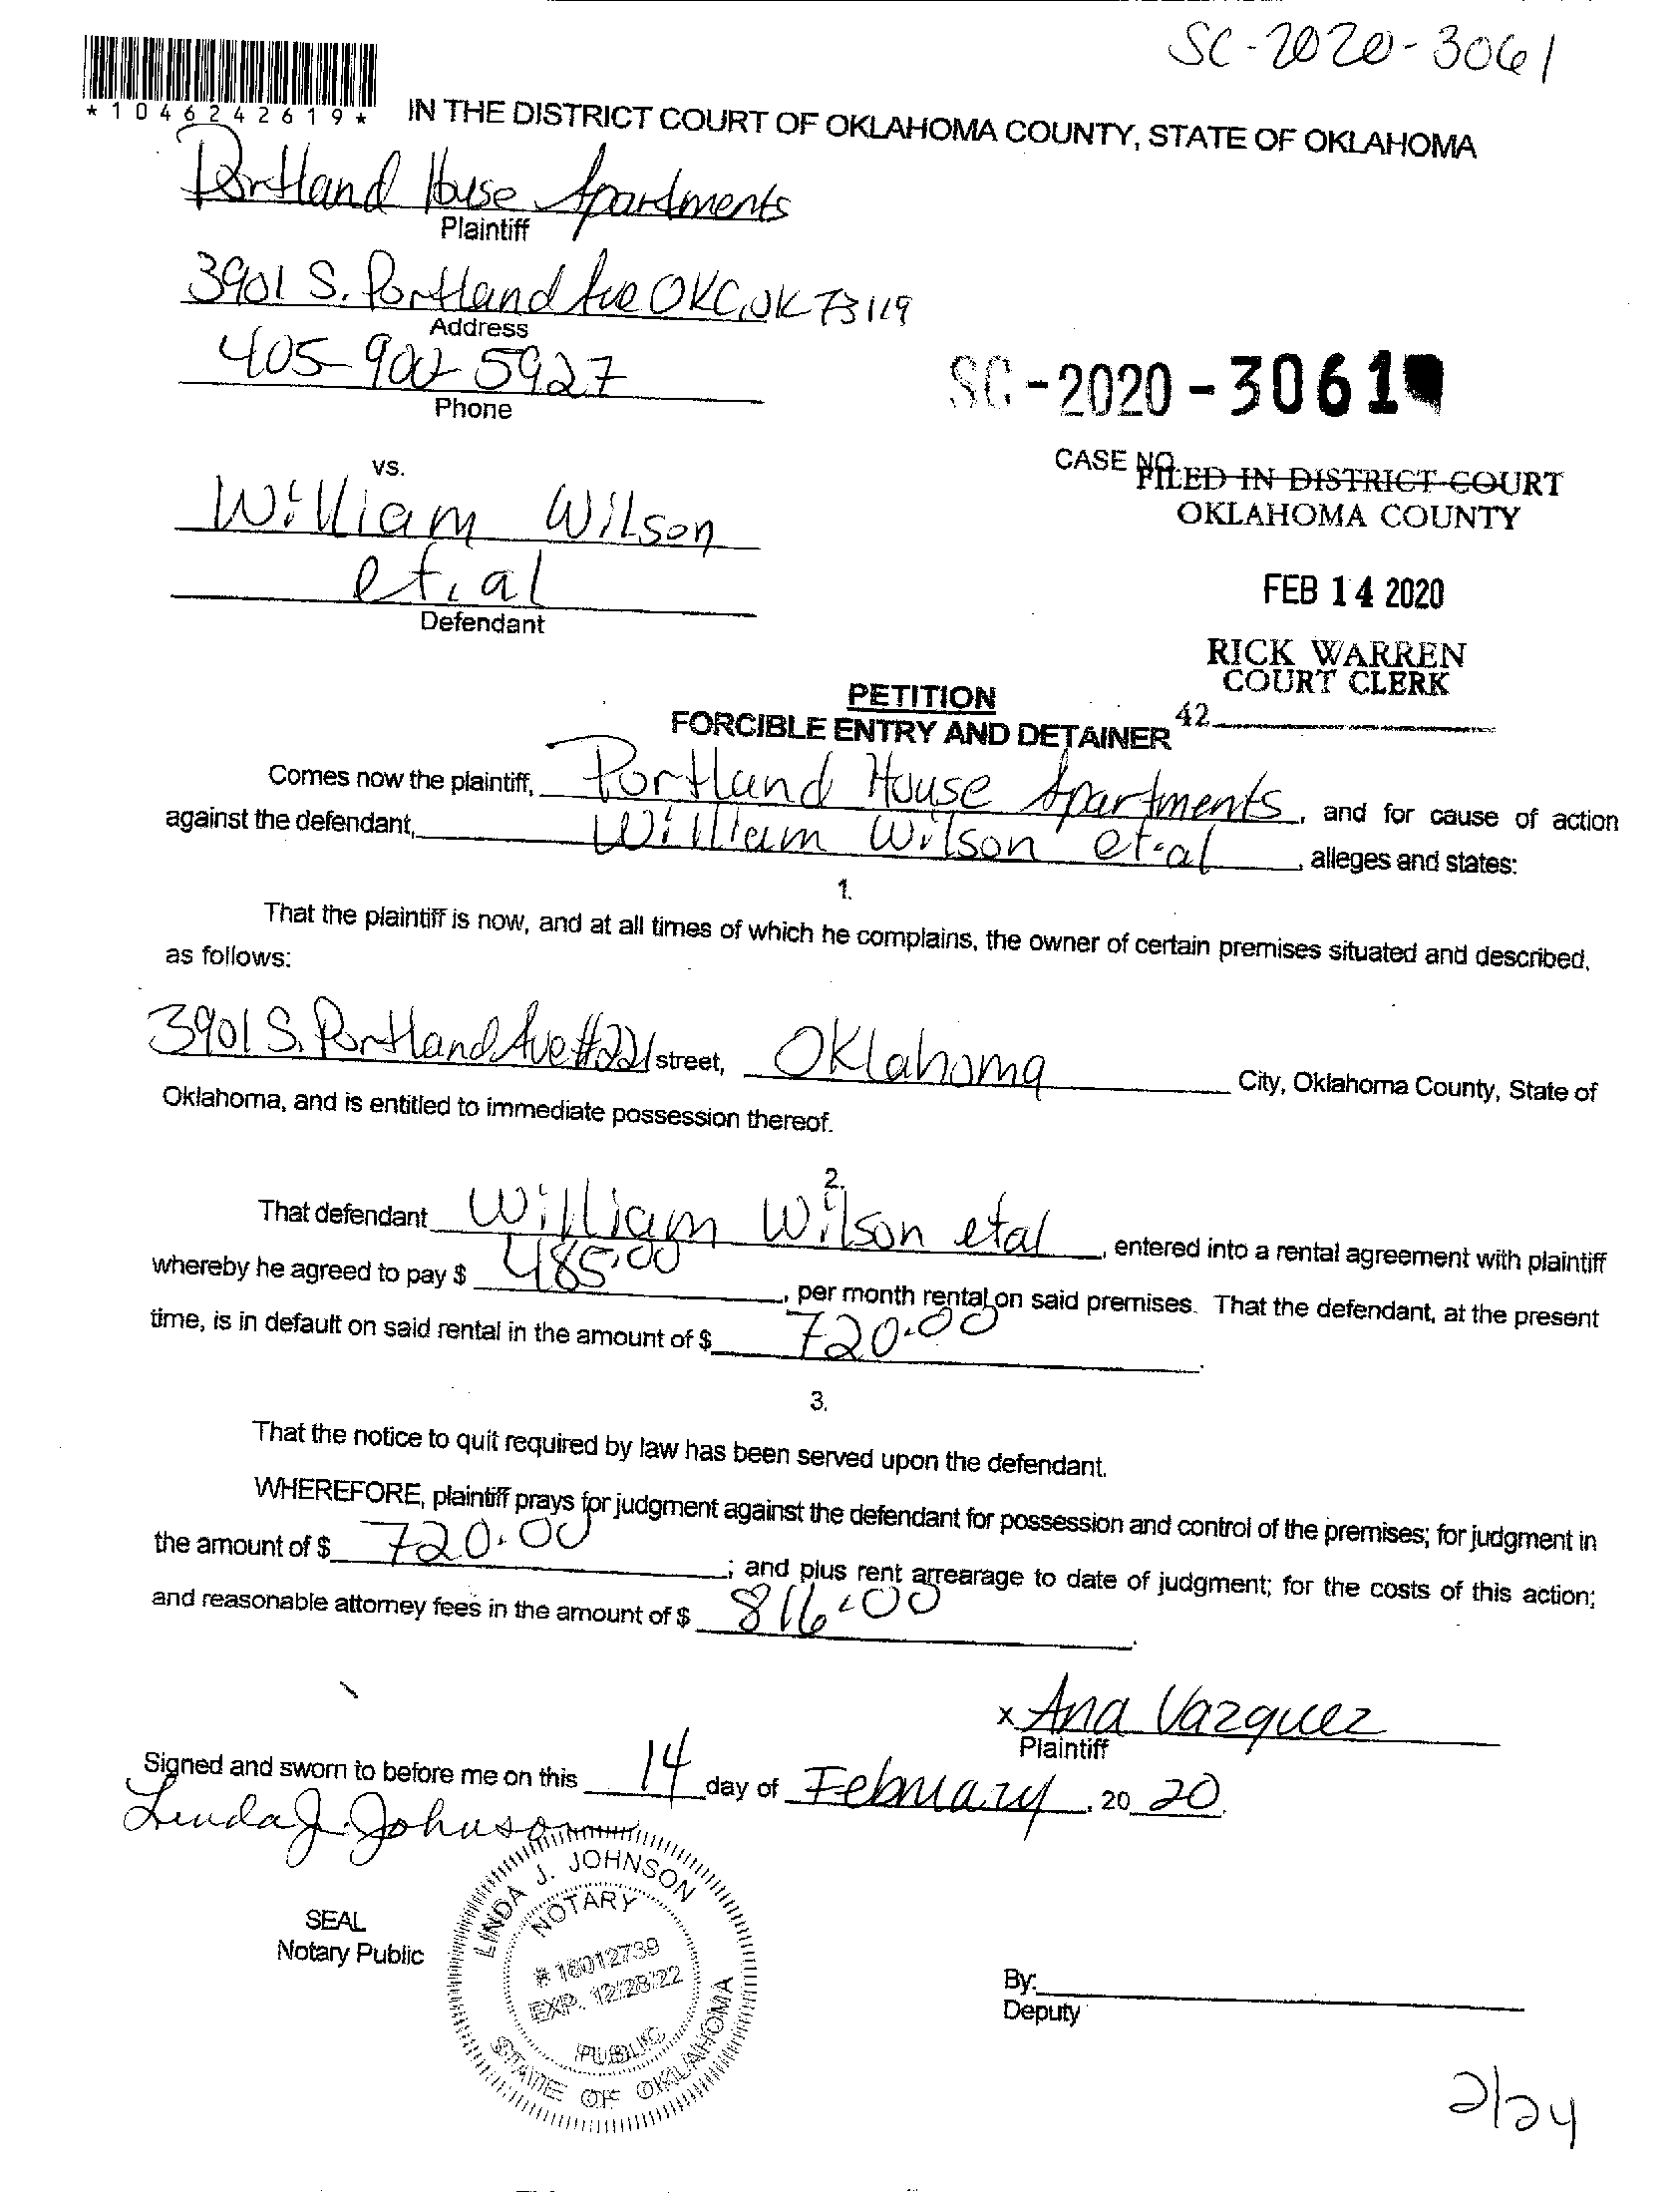 SC-2020-3061
*1046242619*
IN THE DISTRICT COURT OF OKLAHOMA COUNTY, STATE OF OKLAHOMA
Portland House Apartments
Plaintiff
3901 S. Portland Ave OKC, OK 73119
Address
405-900-5927
Phone
SC-2020-3061
CASE NO.
FILED IN DISTRICT COURT
OKLAHOMA COUNTY
vs.
William Wilson
et.al
Defendant
FEB 14 2020
RICK WARREN
COURT CLERK
42
PETITION
FORCIBLE ENTRY AND DETAINER
Comes now the plaintiff, Portland House Apartments, and for cause of action
against the defendant, William Wilson et-al, alleges and states:
1.
That the plaintiff is now, and at all times of which he complains, the owner of certain premises situated and described,
as follows:
3901 S. Portland Ave #221 street, Oklahoma City, Oklahoma County, State of
Oklahoma, and is entitled to immediate possession thereof.
2.
That defendant William Wilson etal, entered into a rental agreement with plaintiff
whereby he agreed to pay $ 485.00, per month rental on said premises. That the defendant, at the present
time, is in default on said rental in the amount of $ 720.00.
3.
That the notice to quit required by law has been served upon the defendant.
WHEREFORE, plaintiff prays for judgment against the defendant for possession and control of the premises; for judgment in
the amount of $ 720.00; and plus rent arrearage to date of judgment; for the costs of this action;
and reasonable attorney fees in the amount of $ 816.00.
x Ana Vazquez
Plaintiff
Signed and sworn to before me on this 14 day of February, 20 20.
Linda J. Johnson
LINDA J. JOHNSON
NOTARY
# 16012739
EXP. 12/28/22
PUBLIC
STATE OF OKLAHOMA
SEAL
Notary Public
By:
Deputy
2/24